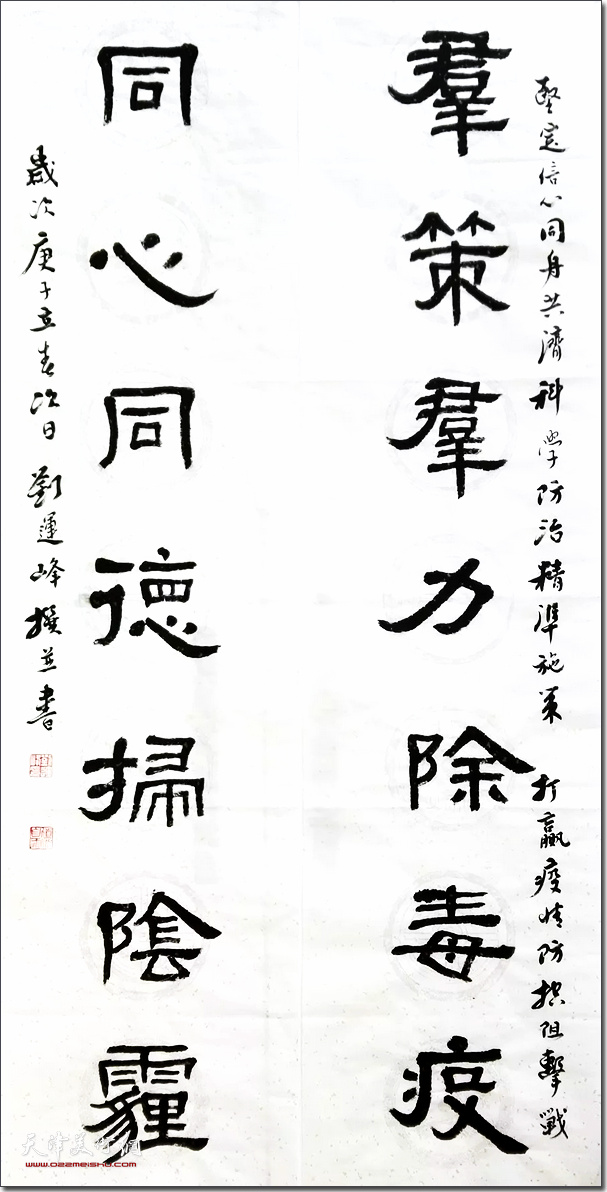 堅定信心同舟共濟科學防治精準施策 打贏疫情防控阻擊戰
羣策羣力除毒疫
同心同德掃陰霾
歲次庚子立春次日 劉運峰撰並書
天津美术网
www.022meishu.com